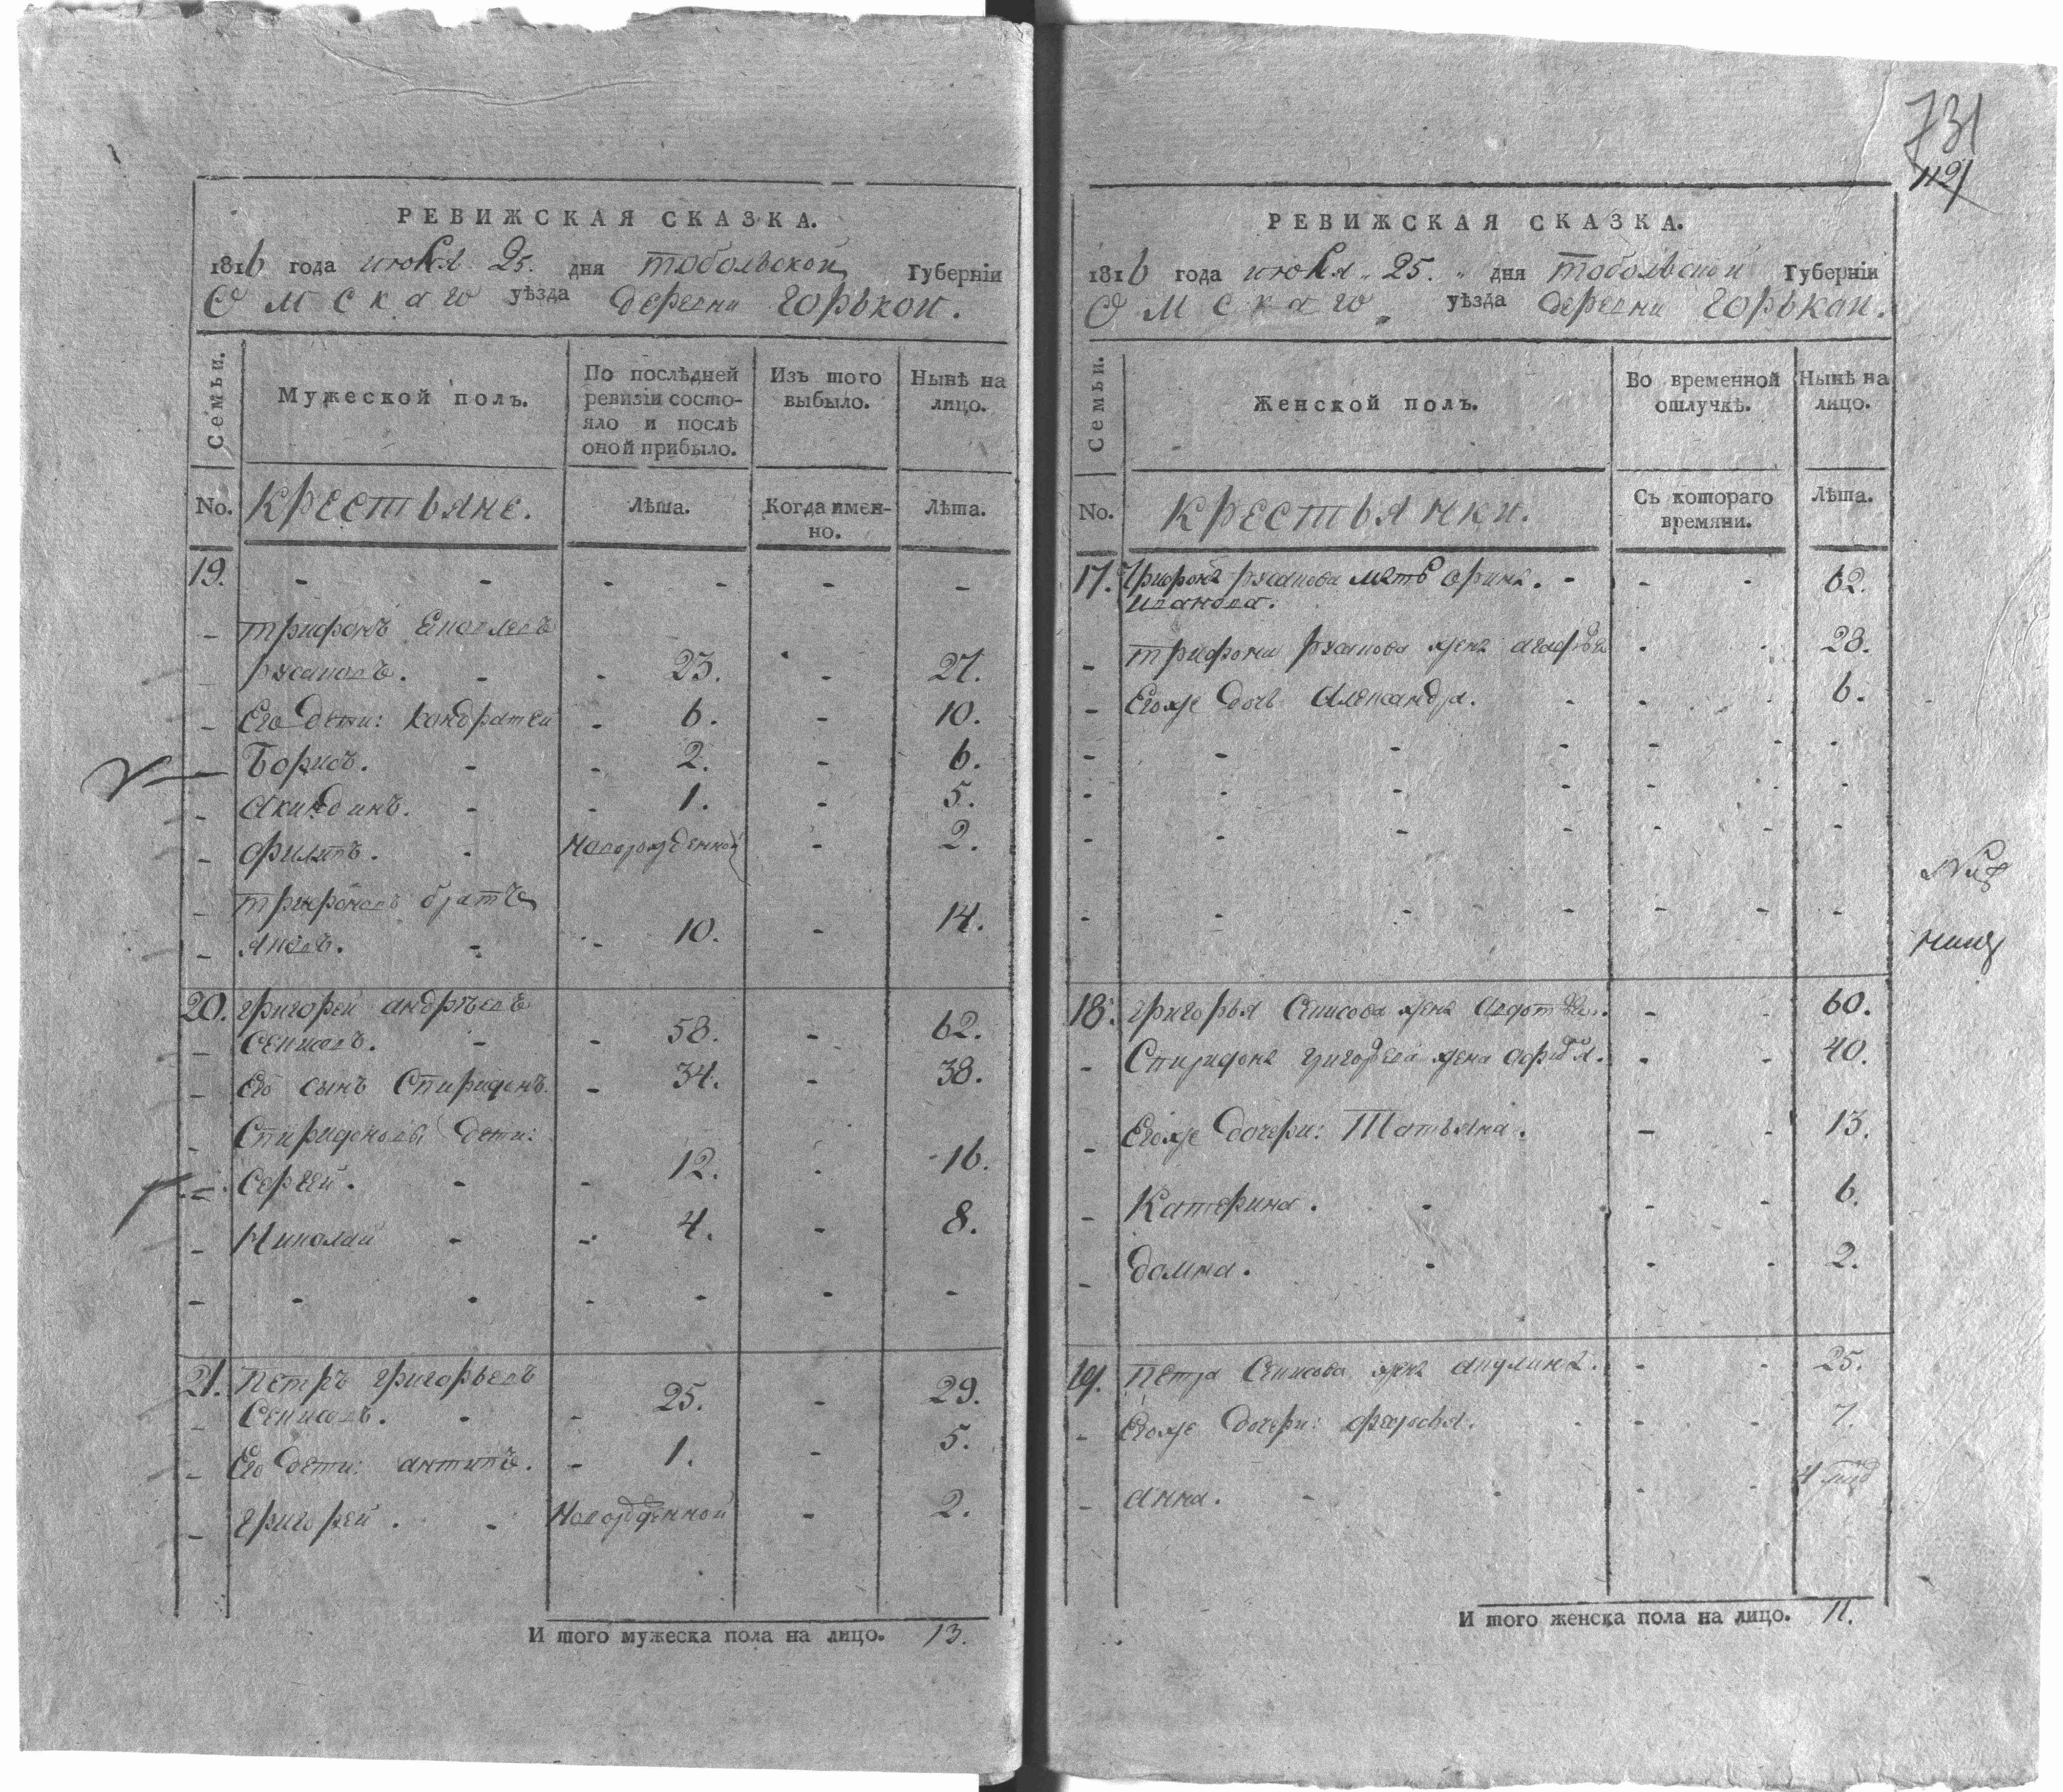 731
119
РЕВИЖСКАЯ СКАЗКА.
1816 года июля 25. дня тобольской Губерніи
Омскаго уѣзда деревни горькой.
Семьи.
Мужеской полъ.
По послѣдней ревизіи состояло и послѣ оной прибыло.
Изъ того выбыло.
Нынѣ на лицо.
No.
крестьяне.
Лѣта.
Когда именно.
Лѣта.
19. - - - - - -
трифонъ
русановъ. - 23. - 27.
Его дети: кондратей - 6. - 10.
Борисъ. - 2. - 6.
акиндинъ. - 1. - 5.
филипъ. - Новорожденной - 2.
трифоновъ братъ
яковъ. - 10. - 14.
20. григорей андрѣевъ
Сенисовъ. - 58. - 62.
Его сынъ Спиридонъ. - 34. - 38.
Спиридоновы дети:
Сергей. - 12. - 16.
Николай - 4. - 8.
21. Петръ григорьевъ
Сенисовъ. - 25. - 29.
Его дети: антипъ. - 1. - 5.
григорей. - Новорожденной - 2.
И того мужеска пола на лицо. 13.
РЕВИЖСКАЯ СКАЗКА.
1816 года июля 25. дня тобольской Губерніи
Омскаго уѣзда деревни горькой.
Семьи.
Женской полъ.
Во временной отлучкѣ.
Нынѣ на лицо.
No.
крестьянки.
Съ котораго времяни.
Лѣта.
17. трифона русанова мать орина. - - 62.
иванова.
трифона русанова жена агафья - - 28.
Егоже дочь Александра. - - 6.
18. григорья Сенисова жена авдотья. - - 60.
Спиридона григорьева жена софья. - - 40.
Егоже дочери: Татьяна. - - 13.
Катерина. - - 6.
домна. - - 2.
19. Петра Сенисова жена акулина. - - 25.
Егоже дочери: - - 7.
анна. - - 4
И того женска пола на лицо. 11.